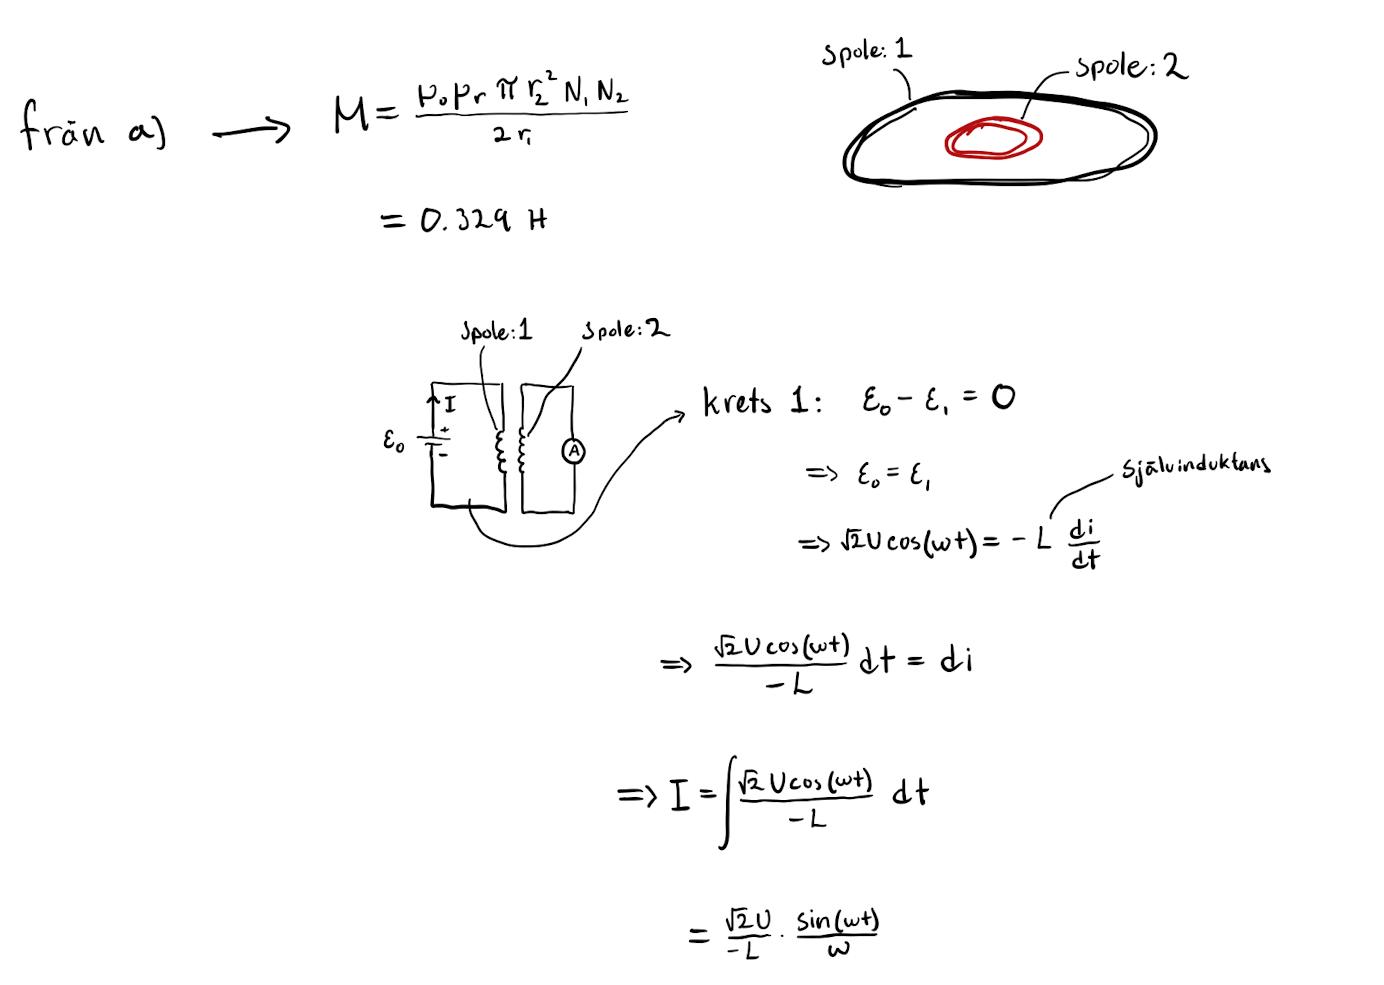 spole: 1
spole: 2
från a) → M = μ₀ μr π r₂² N₁ N₂ / 2 r₁
= 0.329 H
spole: 1 spole: 2
I
+
ε₀
-
A
krets 1: ε₀ - ε₁ = 0
=> ε₀ = ε₁
självinduktans
=> √2 U cos(ωt) = - L di/dt
=> √2 U cos(ωt) / -L dt = di
=> I = ∫ √2 U cos(ωt) / -L dt
= √2 U / -L · sin(ωt) / ω